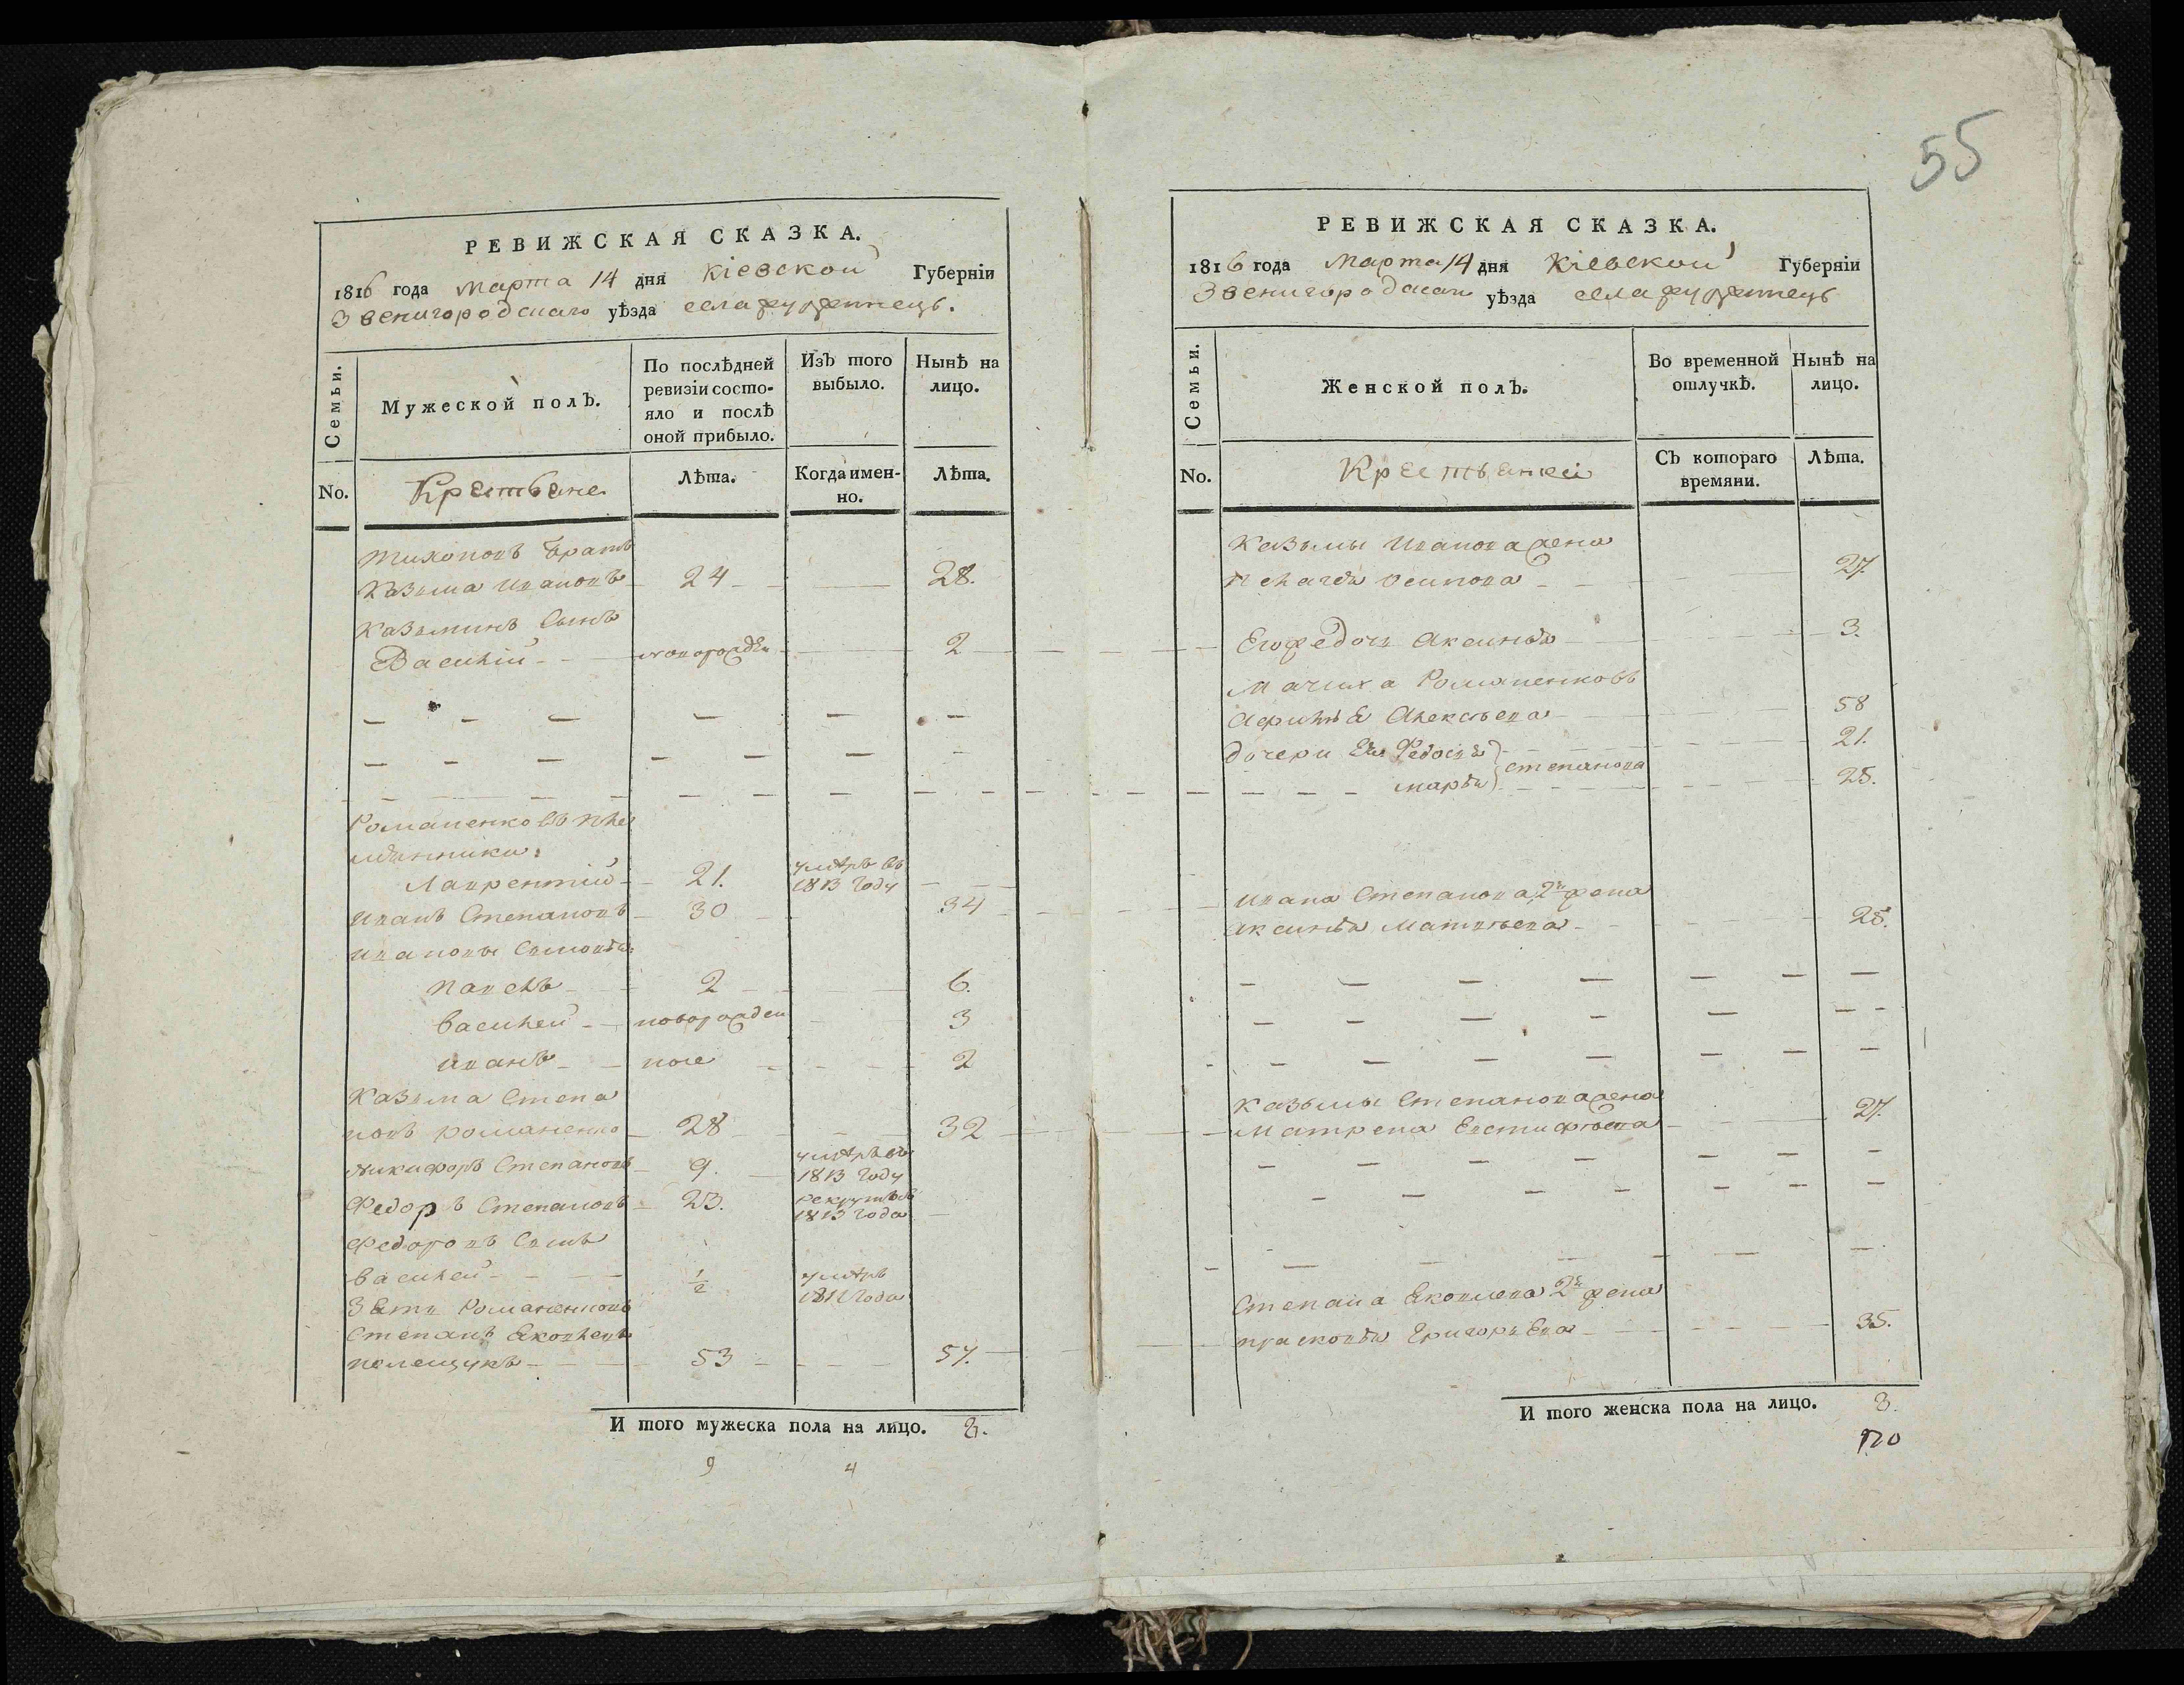 55
РЕВИЖСКАЯ СКАЗКА.
1816 года марта 14 дня Кіевской Губерніи
Звенигородскаго уѣзда села
Семьи.
Мужеской полъ.
По послѣдней ревизіи состо-
яло и послѣ
оной прибыло.
Изъ того
выбыло.
Нынѣ на
лицо.
No.
Крестьяне
Лѣта.
Когда имен-
но.
Лѣта.
Тихоновъ братъ
Казьма Ивановъ 24 28.
Казьминъ сынъ
Василій новорожден 2
Романенковъ пле
мянники:
умѣръ въ
Лаврентій 21. 1813 году
Иванъ Степановъ 30 34
Ивановы сыновья
Павелъ 2 6.
Василей новорожден 3
Иванъ тоже 2
Казьма Степа
новъ Романенко 28 32
умѣръ въ
Никифоръ Степановъ 9. 1813 году
рекрутъ въ
Федоръ Степановъ 23. 1813 года
Федоровъ сынъ
Василей ½ умѣръ
1811 года
Зять Романенковъ
Степанъ Яковлевъ
Полещукъ 53 57.
И того мужеска пола на лицо. 8.
9 4
РЕВИЖСКАЯ СКАЗКА.
1816 года марта 14 дня Кіевской Губерніи
Звенигородскаго уѣзда села
Семьи.
Женской полъ.
Во временной
отлучкѣ.
Нынѣ на
лицо.
No.
Крестьянки
Съ котораго
времяни.
Лѣта.
Казьмы Иванова жена
Пелагѣя Осипова 27.
Его дочь Аксинья 3.
Мачиха Романенковъ
Алексѣева 58
дочери Ея Федосья 21.
Степанова
Марья 25.
Ивана Степанова 2я жена
Аксинья Матвѣева 28.
Казьмы Степанова жена
Матрена Евстифѣева 27.
Степана Яковлева 2я жена
Прасковья Григорьева 35.
И того женска пола на лицо. 8.